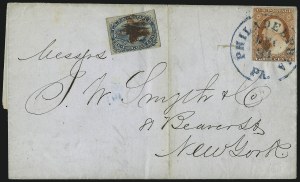 PHILADELPHIA
PA.
Messrs
J. W. Smyth & Co
81 Beaver St
New York